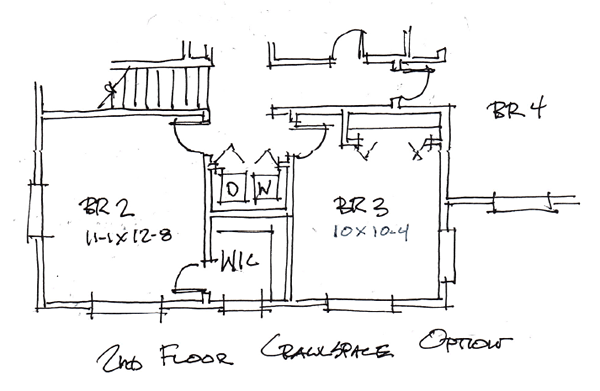 BR 4
D W
BR 2
11-1 X 12-8
BR 3
10 X 10-4
WIC
2ND FLOOR CRAWLSPACE OPTION